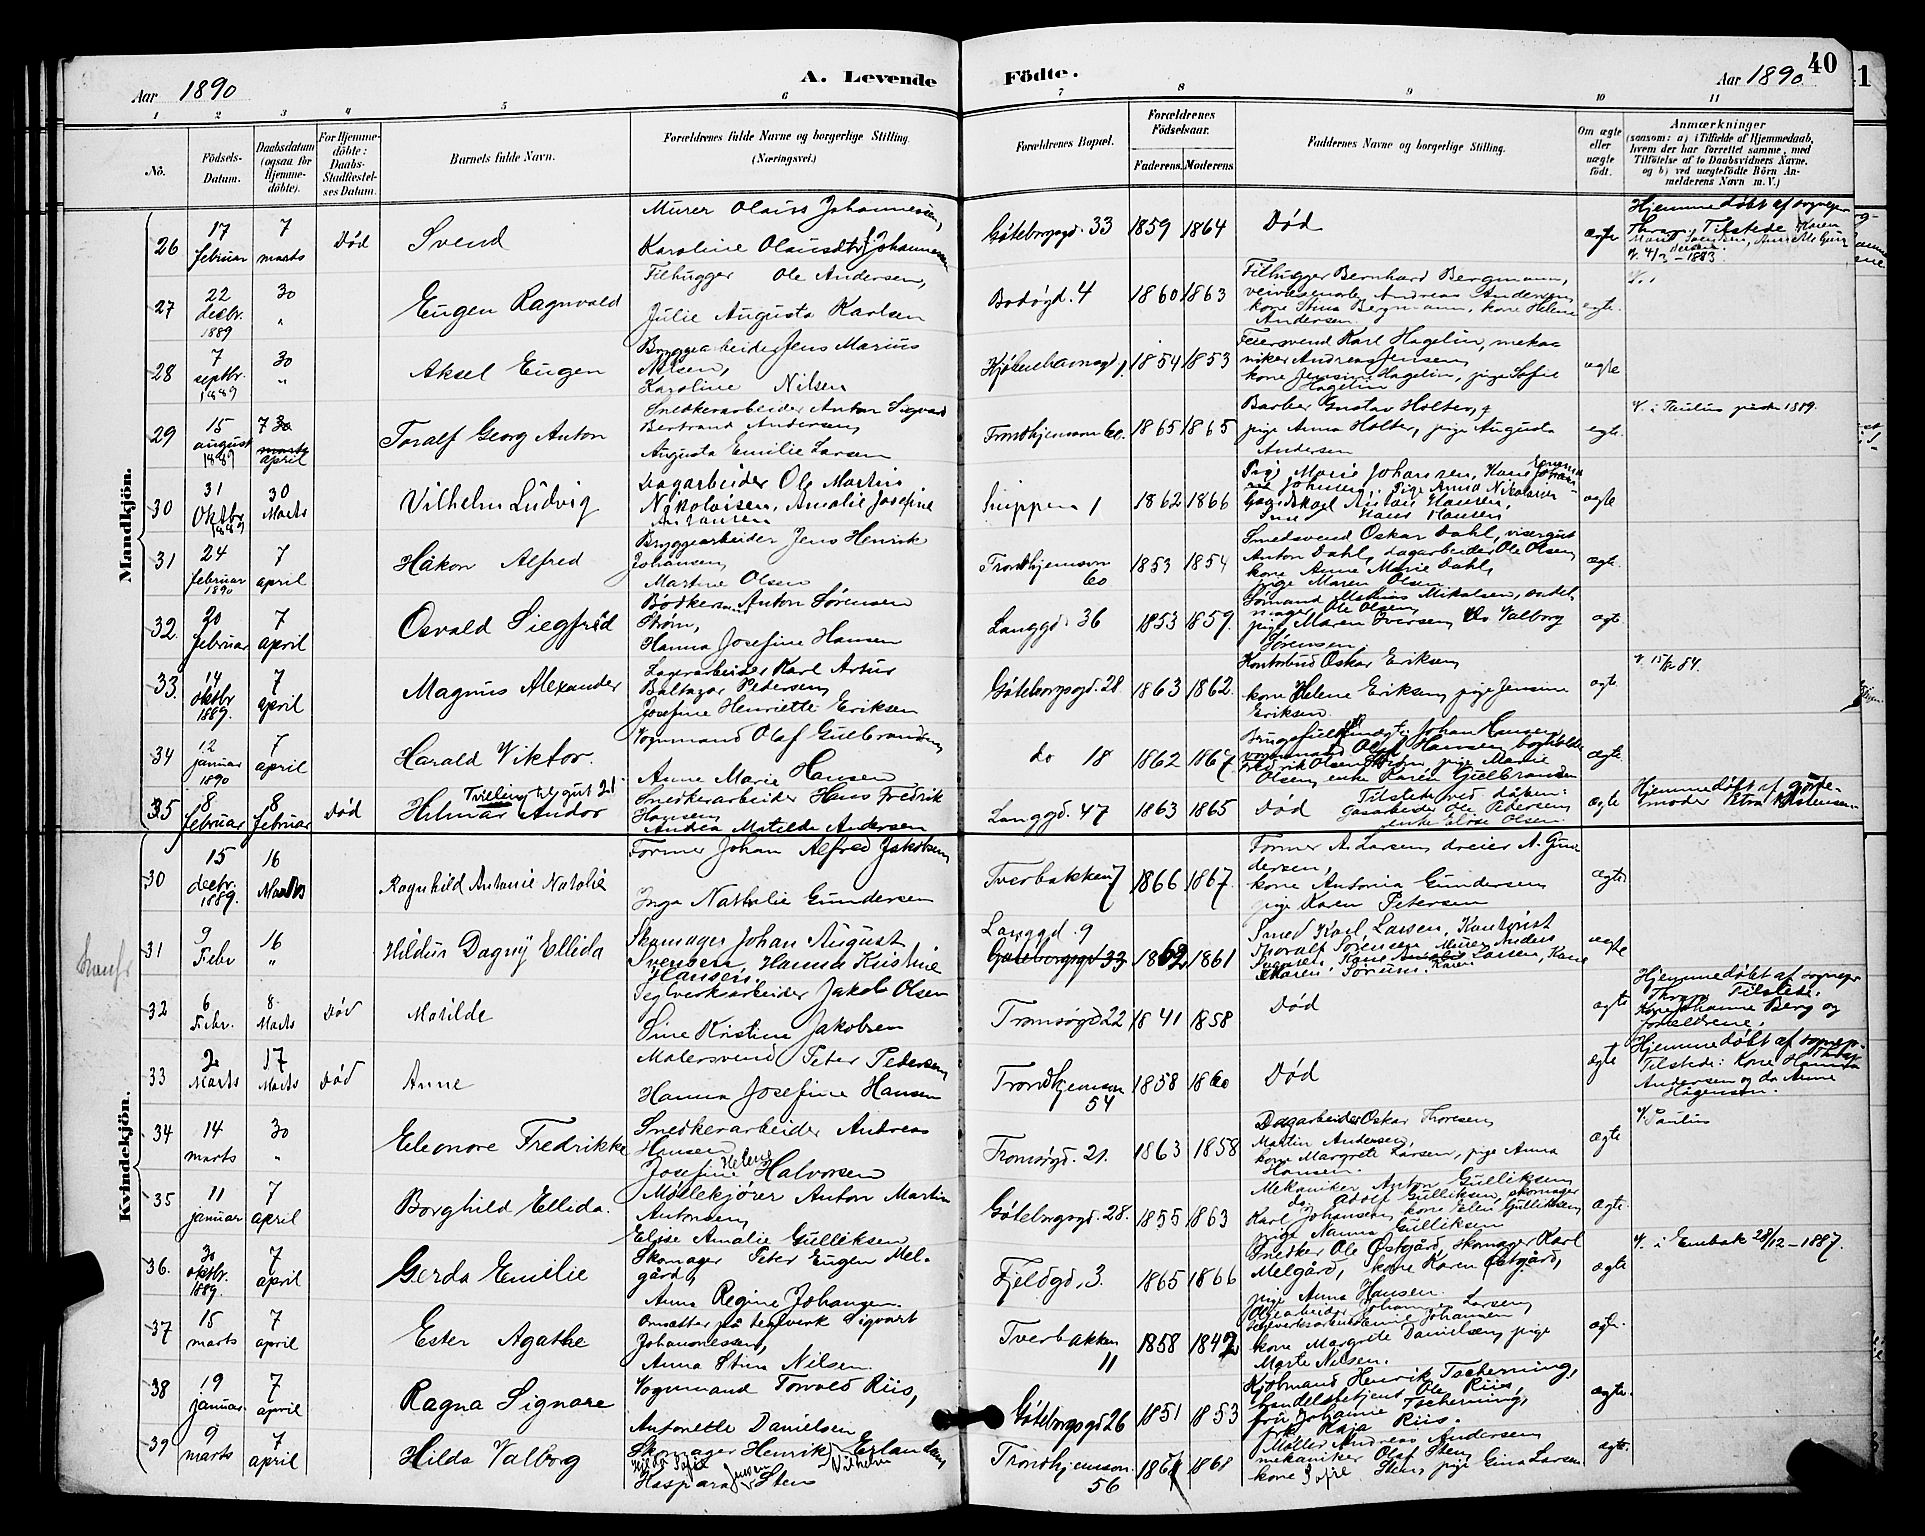 Aar 1890
A. Levende
Födte.
Aar 1890.
40
1 2 3 4 5 6 7 8 9 10 11
No.
Födsels-Datum.
Daabsdatum (ogsaa for Hjemmedöbte).
For Hjemmedöbte: Daabs-Stadfæstelses Datum.
Barnets fulde Navn.
Forældrenes fulde Navne og borgerlige Stilling. (Næringsvei.)
Forældrenes Bopæl.
Forældrenes Födselsaar.
Faderens. Moderens.
Faddernes Navne og borgerlige Stilling.
Om ægte eller uægte födt.
Anmærkninger
(saasom: a) i Tilfælde af Hjemmedaab, hvem der har forrettet samme, med Tilföielse af to Daabsvidners Navne, og b) ved uægtefödte Börn Anmelderens Navn m. V.)
Mandkjön.
26 17 februar 7 marts Död Svend
Murer Olaus Johannesen,
Karoline Olausdtr Johannesen
Göteborgsgd. 33 1859 1864 Död ægte
Hjemmedöbt af sognepr. Thrap. Tilstede
27 22 decbr. 1889 30 " Eugen Ragnvald
Filhugger Ole Andersen,
Julie Augusta Karlsen
Bodøgd. 4 1860 1863
Filhugger Bernhard Bergmann,
Andreas Andersen,
kone Bergmann, kone Helene
Andersen ægte.
28 7 septbr. 1889 30 " Aksel Eugen
Bryggearbeider Jens Marius
Nilsen,
Karoline Nilsen
Kjøbenhavnsgd. 1. 1854 1853
Feiersvend Karl Hagelin, mekaniker Andreas Jensen,
kone Jensine Hagelin, pige Sofie
Hagelin ægte
29 15 august 1889 7 30 marts april Toralf Georg Anton
Snedkerarbeider Anton Sigvard
Bertrand Andersen,
Augusta Emilie Larsen
Trondhjemsvn 60. 1865 1865
Barber Gustav Holter,
pige Anna Holter, pige Augusta
Andersen ægte.
V. i Paulus 1889.
30 31 Oktbr 1889 30 Marts Vilhelm Ludvig
Dagarbeider Ole Martin
Nikolaisen, Amalie Josefine
Antonsen
Snippen 1 1862 1866
Pige Marie Johansen, Kone
Johnsen, Pige Anna Nikolaisen
Hansen,
Hans Hansen, ægte
31 24 februar 1890 7 april Håkon Alfred
Bryggearbeider Jens Henrik
Johansen,
Martine Olsen
Trondhjemsvn 60 1853 1854
Smedsvend Oskar Dahl, visergut
Anton Dahl, dagarbeider Ole Olsen,
kone Anne Marie Dahl,
pige Maren Olsen ægte.
32 20 februar 7 april Osvald Siegfrid
Bødkersvend Anton Sørensen
Strøm,
Hanna Josefine Hansen
Langgd. 36 1853 1859.
Sömand Mathias Mikalsen,
Ole Olsen,
pige Maren Iversen, do Valborg
Sørensen ægte
33. 14 oktbr 1889. 7 april Magnus Alexander
Lagerarbeider Karl Artur
Baltazar Pedersen,
Josefine Henriette Eriksen
Göteborgsgd. 28 1863 1862.
Kontorbud Oskar Eriksen,
kone Helene Eriksen, pige Jensine
Eriksen. ægte.
34 12 januar 1890 7 april Harald Viktor.
Vognmand Olaf Gulbrandsen
Anne Marie Hansen
do 18 1862 1867.
Johan Hansen,
vognmand Olaf Hansen, bogholder
Fredrik Olsen, pige Marie
Olsen, enke Karen Gulbrandsen ægte.
35 8 februar 8 februar Död Hilmar Andor
Tvilling til gut 21
Snedkerarbeider Hans Fredrik
Hansen,
Andrea Matilde Andersen
Langgd. 47 1863 1865 Död
Tilstede ved dåben:
Gasarbeider Ole Pedersen,
enke Elise Olsen. ægte
Hjemmedöbt af gjordemoder Petra Kristensen
Kvindekjön.
30 15 decbr. 1889. 16 Marts Ragnhild Antonie Natalie
Former Johan Alfred Jakobsen
Inga Nathalie Gundersen
Tverbakken 7 1866 1867.
Former A. Larsen, dreier A. Gundersen,
kone Antonia Gundersen
pige Karen Petersen ægte
31 9 Febr 16 " Hildur Dagny Ellida
Skomager Johan August
Svensen, Hanna Kristine
Hansen.
Langgd. 9
Göteborgsgd 33 1862 1861
Smed Karl Larsen, Kontorist
Thoralf Sörensen, Murer Anders
Larsen, Kone
Karen Sørum. ægte
32 6 Febr. 8 Marts Död Matilde
Teglverksarbeider Jakob Olsen
Sine Kristine Jakobsen
Tromsøgd 22 1841 1858 Död ægte
Hjemmedöbt af sognepr Thrap Tilstede:
Kone Johanne Berg og
forældrene.
33 2 Marts 17 Marts Död Anne
Malersvend Peter Pedersen,
Hanna Josefine Hansen
Trondhjemsvn 54 1858 1860 Död ægte
Hjemmedöbt af sognepr. Thrap
Tilstede: Kone Hanna
Andersen og do Anne
Hågensen.
34 14 marts 30 " Eleonore Fredrikke
Snedkerarbeider Andreas
Hansen
Josefine Helene Halvorsen
Tromsøgd. 21. 1863 1858
Dagarbeider Oskar Thoresen
Martin Andersen,
kone Margrete Larsen, pige Anna
Hansen. ægte
V. Paulus
35 11 januar 7 april Borghild Ellida.
Møllekjører Anton Martin
Antonsen,
Elise Amalie Gulliksen
Göteborgsgd. 28. 1855 1863
Mekaniker Anton Gulliksen
do Adolf Gulliksen, skomager
Karl Johansen, kone Elen Gulliksen,
pige Nanna Gulliksen ægte.
36. 30 oktbr. 1889. 7 april Gerda Emilie
Skomager Peter Eugen Melgård,
Anna Regine Johansen.
Fjeldgd. 3. 1865 1866
Snedker Ole Østgård, skomager Karl
Melgård, kone Karen Østgård,
pige Anna Hansen. ægte
V. i Enebak 28/12-1887.
37 15 marts 7 april Ester Agathe
Omsætter på teglverk Sigvart
Johannessen,
Anna Stina Nilsen.
Tverbakken 11 1858 1842
Johannes Larsen,
kone Margrete Danielsen, pige
Marte Nilsen. ægte.
38 19 januar. 7 april Ragna Signore
Vognmand Torvald Riis,
Antonette Danielsen
Göteborgsgd 26 1851 1853
Kjöbmand Henrik Tscherning,
handelsbetjent Ole Riis,
fru Johanne Tscherning,
frk. Kaja Riis. ægte.
39 9 marts 7 april Hilda Valborg
Skomager Henrik Vilhelm Erlandsen,
Hilda Sofie Kaspara Jensen Sten
Trondhjemsvn. 56 1867 1868
Møller Andreas Andersen
mekaniker Olaf Sten,
kone Sofie Sten, pige Gina Larsen ægte.